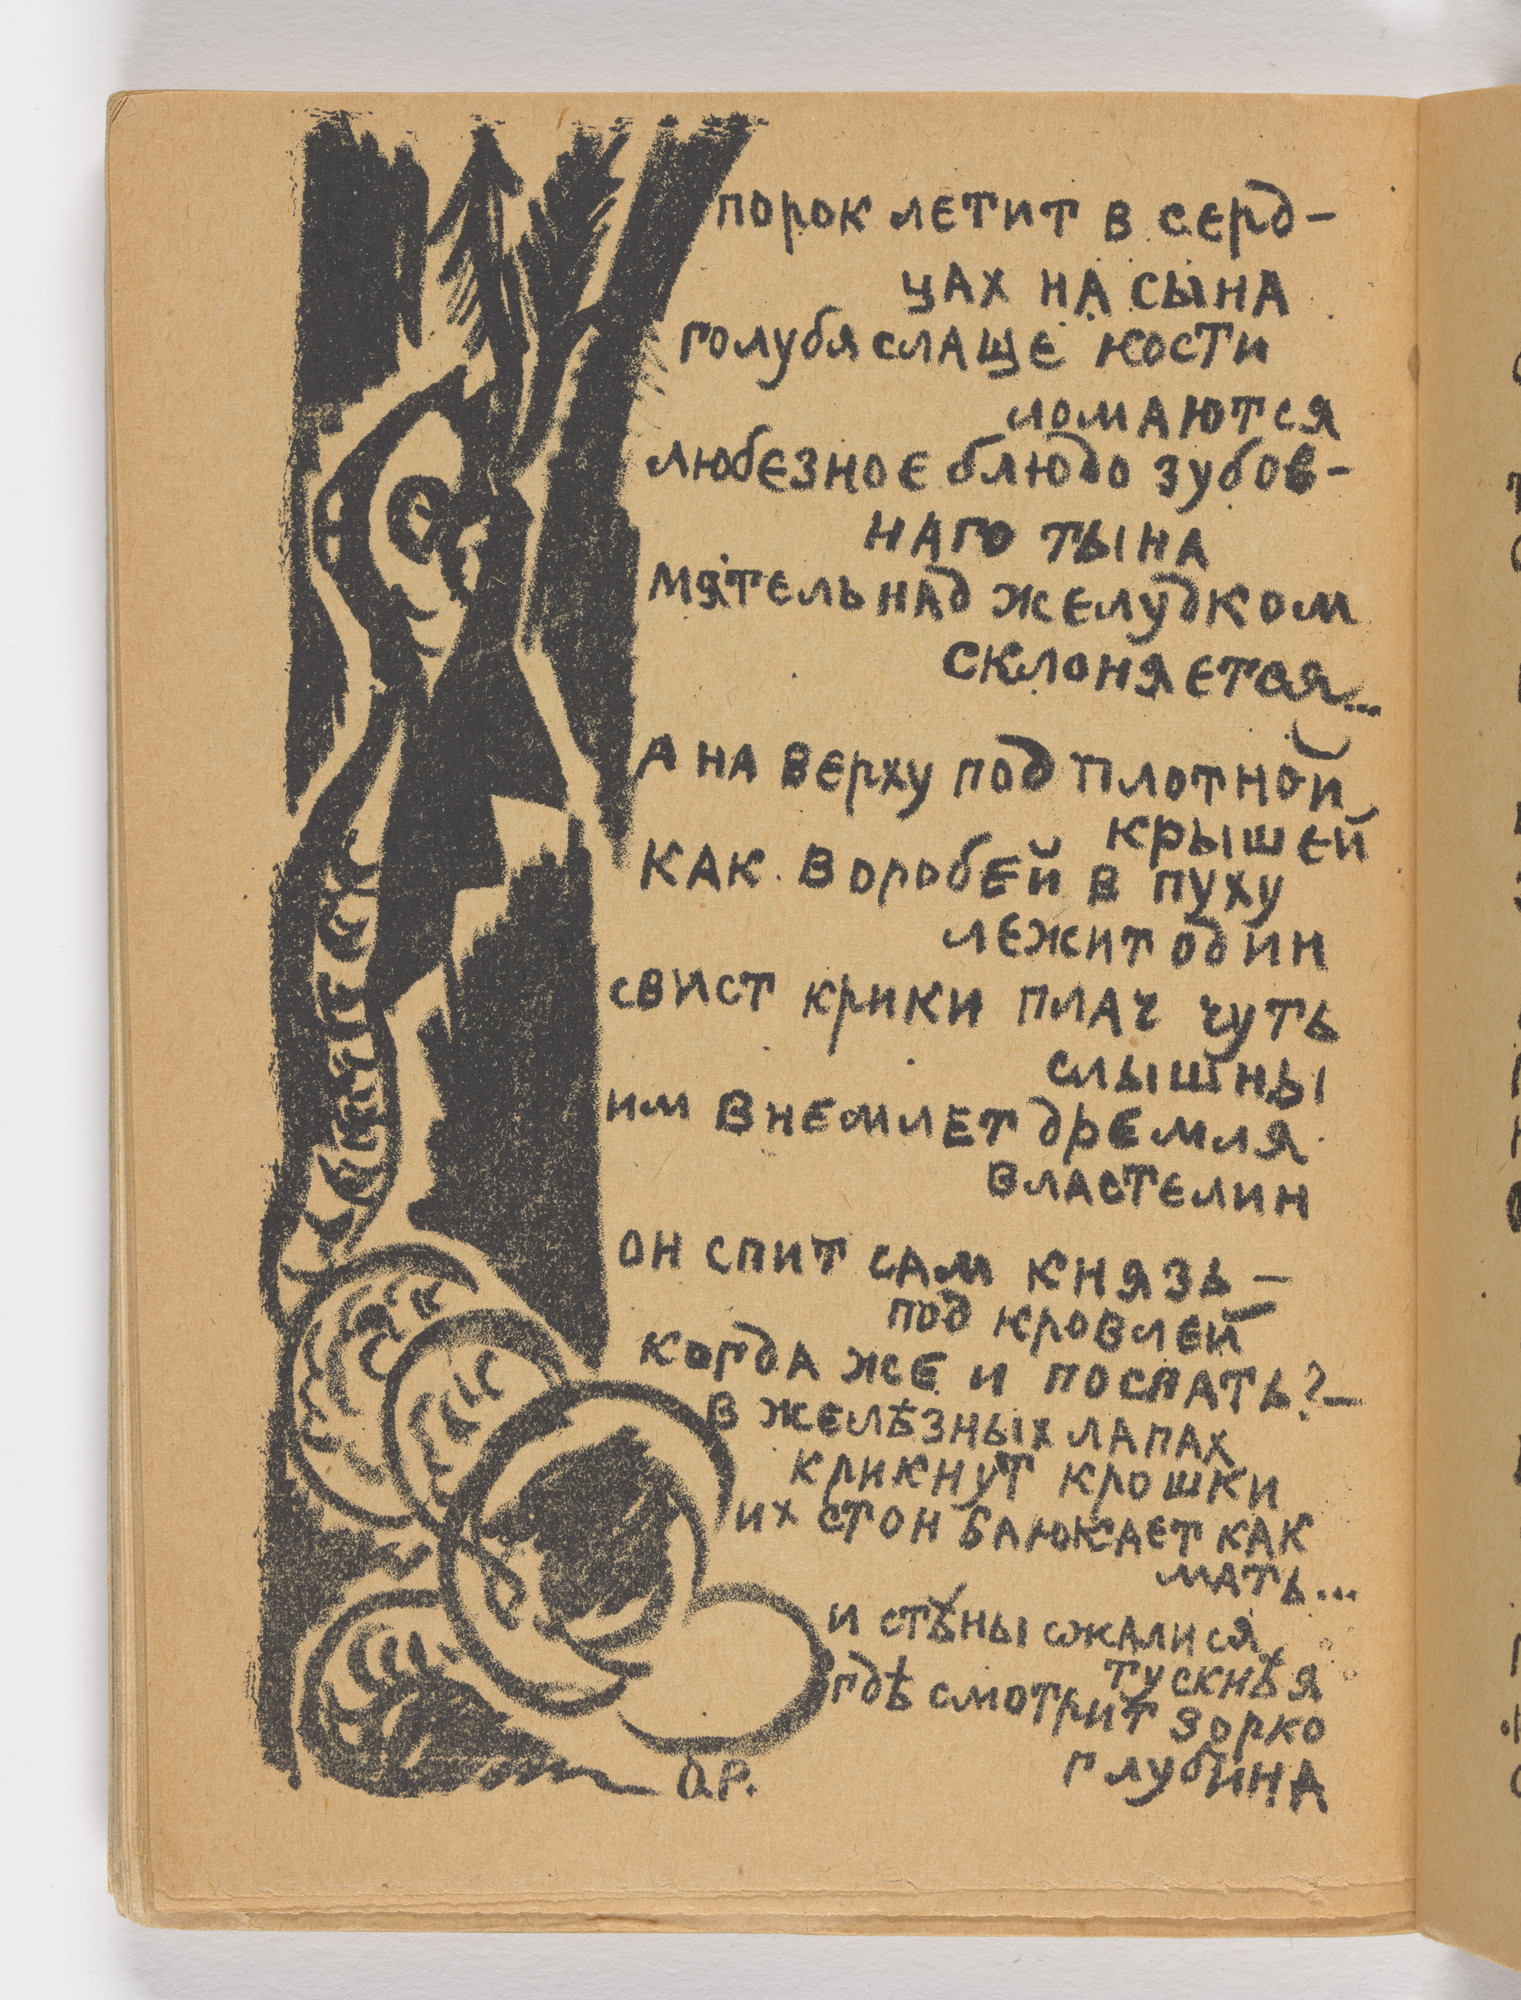 порок летит в серд-
цах на сына
голубя слаще кости
ломаются
любезное блюдо зубов-
наго тына
мятель над желудком
склоняется...
а на верху под плотной
крышей
как воробей в пуху
лежит один
свист крики плач чуть
слышны
им внемлет дремля
властелин
он спит сам князь —
под кровлей
когда же и поспать? —
в желѣзных лапах
крикнут крошки
их стон баюкает как
мать...
и стѣны сжалися
тускнѣя
гдѣ смотрит зорко
глубина
О.Р.